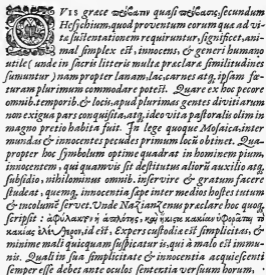 OVIS græce πρόβατον quasi πρόβατον, secundum
Hesychium, quod proventum eorum quæ ad vi-
tæ sustentationem requiruntur, significet, ani-
mal simplex est, innocens, & generi humano
utile (unde in sacris litteris multæ præclaræ similitudines
sumuntur) nam propter lanam, lac, carnes atq, ipsam fœ-
turam plurimum commodare potest. Quare ex hoc pecore
omnib. temporib. & locis, apud plurimas gentes divitiarum
non exigua pars conquisita, atq, ideo vita pastoralis olim in
magno pretio habita fuit. In lege quoque Mosaica, inter
mundas & innocentes pecudes primum locum obtinet. Qua-
propter hoc symbolum optime quadrat in hominem pium,
innocentem, qui quamvis sit destitutus aliorū auxilio atq,
subsidio, nihilominus omnib. inservire & gratum facere
studet, quemq, innocentia sæpe inter medios hostes tutum
& incolumē servet. Unde Nazianzenus præclare hoc quoq,
scripsit: ἀφύλακτον ἡ ἁπλότης, κακίας
κακίας ἐλεύθερον, id est, Expers custodiæ est simplicitas, &
minime mali quicquam suspicatur is, qui à malo est immu-
nis. Quali in sua simplicitate & innocentia acquiescenti
semper esse debet ante oculos sententia versuum horum,